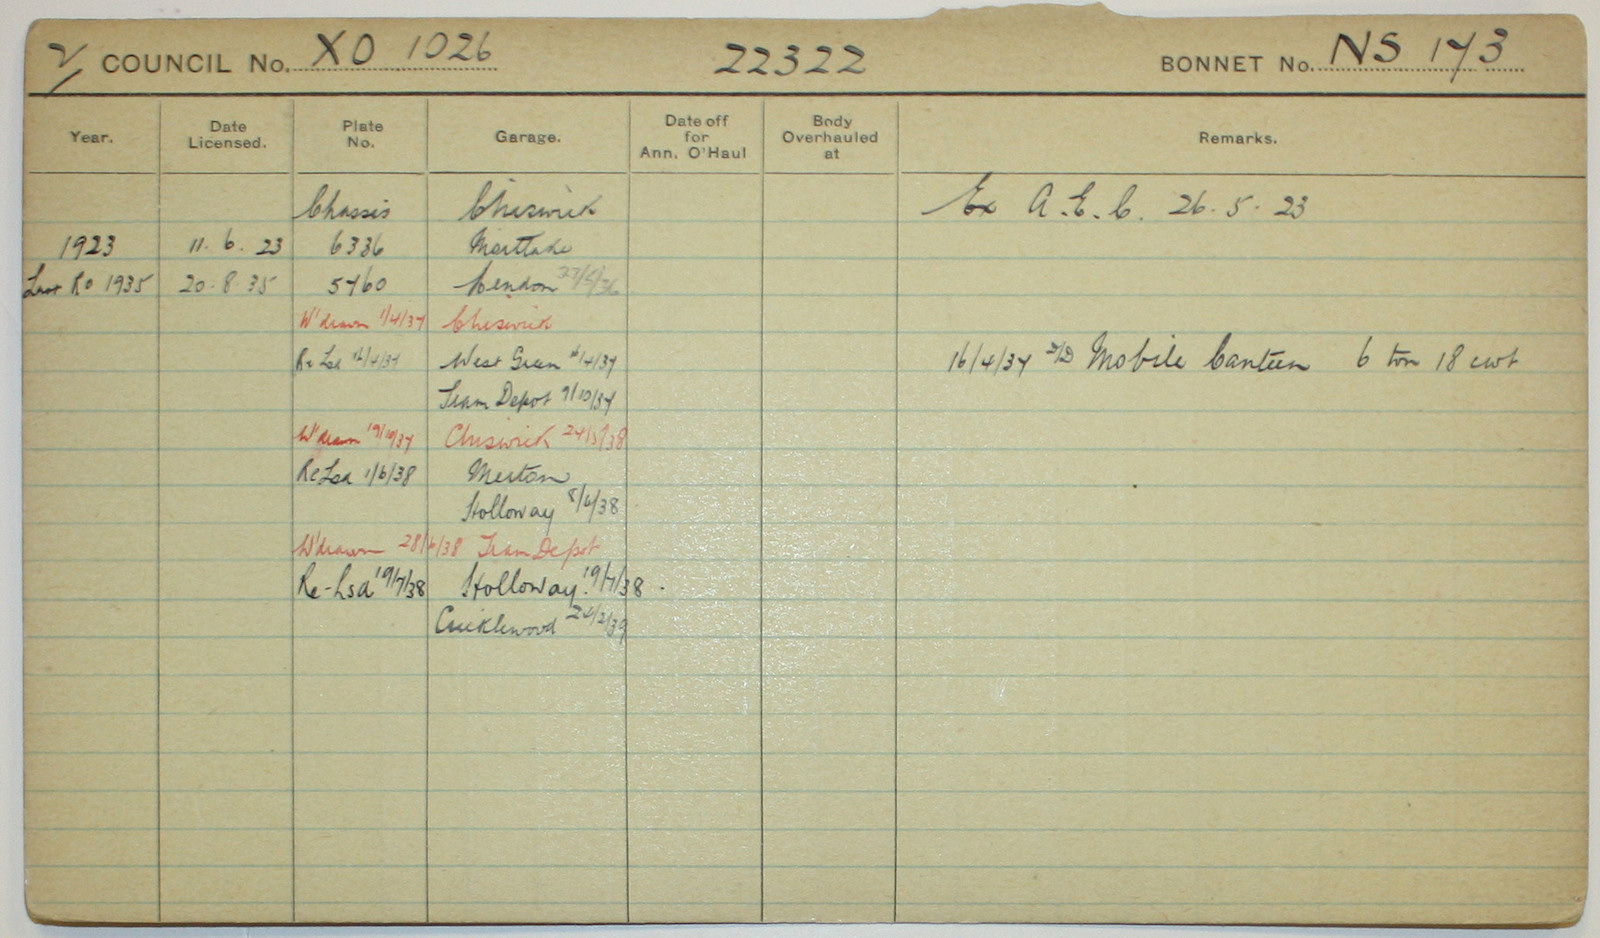 COUNCIL No. XO 1026 22322 BONNET No. NS 173
Year. Date Licensed. Plate No. Garage. Date off for Ann. O'Haul Body Overhauled at Remarks.
Chassis Chiswick Ex A.E.C. 26.5.23
1923 11.6.23 6336 Mortlake
20.8.35 5760 Hendon
W'drawn 1/4/37 Chiswick
Re Lsd 16/4/37 West Green 16/4/37 16/4/37 Mobile Canteen 6 ton 18 cwt
Tram Depot 9/10/37
W'drawn 19/10/37 Chiswick 24/5/38
Re Lsd 1/6/38 Merton
Holloway 8/6/38
W'drawn 28/6/38 Tram Depot
Re-Lsd 19/7/38 Holloway. 19/7/38.
Cricklewood 24/2/39